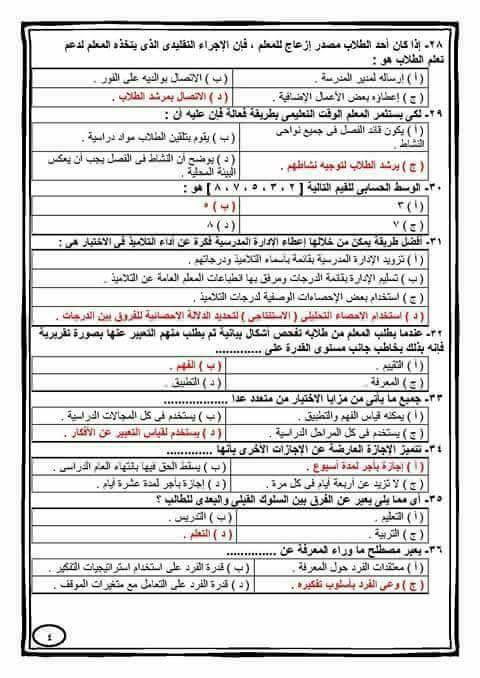 ٢٨- إذا كان أحد الطلاب مصدر إزعاج للمعلم ، فإن الإجراء التقليدى الذى يتخذه المعلم لدعم
تعلم الطلاب هو :
( أ ) إرساله لمدير المدرسة .
( ب ) الاتصال بوالديه على الفور .
( ج ) إعطاؤه بعض الأعمال الإضافية .
( د ) الاتصال بمرشد الطلاب .
٢٩- لكى يستثمر المعلم الوقت التعليمى بطريقة فعالة فإن عليه أن :
( أ ) يكون قائد الفصل فى جميع نواحى
النشاط .
( ب ) يقوم بتلقين الطلاب مواد دراسية .
( ج ) يرشد الطلاب لتوجيه نشاطهم .
( د ) يوضح أن النشاط فى الفصل يجب أن يعكس
البيئة المحلية .
٣٠- الوسط الحسابى للقيم التالية [ ٢ ، ٣ ، ٥ ، ٧ ، ٨ ] هو :
( أ ) ٣
( ب ) ٥
( ج ) ٧
( د ) ٨
٣١- أفضل طريقة يمكن من خلالها إعطاء الإدارة المدرسية فكرة عن أداء التلاميذ فى الاختبار هى :
( أ ) تزويد الإدارة المدرسية بقائمة بأسماء التلاميذ ودرجاتهم .
( ب ) تسليم الإدارة بقائمة الدرجات ومرفق بها انطباعات المعلم العامة عن التلاميذ .
( ج ) استخدام بعض الإحصاءات الوصفية لدرجات التلاميذ .
( د ) استخدام الاحصاء التحليلي ( الاستنتاجي ) لتحديد الدلالة الاحصائية للفروق بين الدرجات .
٣٢- عندما يطلب المعلم من طلابه تفحص أشكال بيانية ثم يطلب منهم التعبير عنها بصورة تقريرية
فإنه بذلك يخاطب جانب مستوى القدرة على .............
( أ ) التقييم .
( ب ) الفهم .
( ج ) المعرفة .
( د ) التطبيق .
٣٣- جميع ما يأتى من مزايا الاختيار من متعدد عدا .................
( أ ) يمكنه قياس الفهم والتطبيق .
( ب ) يستخدم فى كل المجالات الدراسية .
( ج ) يستخدم فى كل المراحل الدراسية .
( د ) يستخدم لقياس التعبير عن الأفكار .
٣٤- تتميز الإجازة العارضة عن الإجازات الأخرى بأنها .............
( أ ) إجازة بأجر لمدة أسبوع .
( ب ) يسقط الحق فيها بانتهاء العام الدراسى .
( ج ) لا تزيد عن أربعة أيام فى كل مرة .
( د ) إجازة بأجر لمدة عشرة أيام .
٣٥- أى مما يلى يعبر عن الفرق بين السلوك القبلى والبعدى للطالب ؟
( أ ) التعليم .
( ب ) التدريس .
( ج ) التربية .
( د ) التعلم .
٣٦- يعبر مصطلح ما وراء المعرفة عن .............
( أ ) معتقدات الفرد حول المعرفة .
( ب ) قدرة الفرد على استخدام استراتيجيات التفكير .
( ج ) وعى الفرد بأسلوب تفكيره .
( د ) قدرة الفرد على التعامل مع متغيرات الموقف .
٤